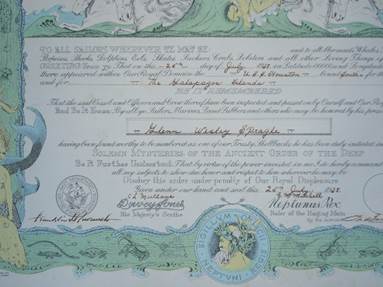 TO ALL SAILORS WHEREVER YE MAY BE: and to all Mermaids,
Sharks, Dolphins, Eels, Skates, Suckers, Crabs, Lobsters and all other Living Things
GREETING: Know Ye: That on this 25th day of July 1938 in Latitude 00000 and Longitude
there appeared within Our Royal Domain the U.S.S. Houston bound South for
and for The Galapagos Islands
BE IT REMEMBERED
That the said Vessel and Officers and Crew thereof have been inspected and passed on by Ourself and Our Royal
And Be It Known: By all ye Sailors, Marines, Land Lubbers and others who may be honored by his presence
Glenn Wesley
having been found worthy to be numbered as one of our Trusty Shellbacks he has been duly initiated into the
SOLEMN MYSTERIES OF THE ANCIENT ORDER OF THE DEEP
Be It Further Understood: That by virtue of the power invested in me I do hereby command
all my subjects to show due honor and respect to him wherever he may be
Disobey this order under penalty of Our Royal Displeasure.
Given under our hand and seal this 25th July 1938
Davey Jones
His Majesty's Scribe
Neptunus Rex
Ruler of the Raging Main
Franklin D Roosevelt
SIGILLUM